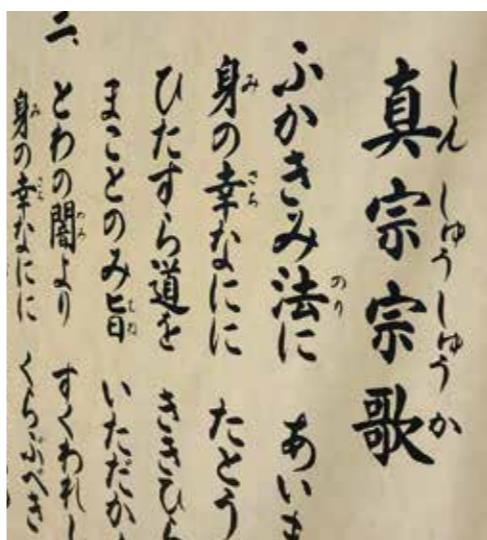 真宗宗歌
しんしゅうしゅうか
ふかきみ法に あいま
のり
身の幸なにに たとう
み さち
ひたすら道を ききひら
まことのみ旨 いただか
むね
二、
とわの闇より すくわれし
やみ
身の幸なにに くらぶべき
み さち